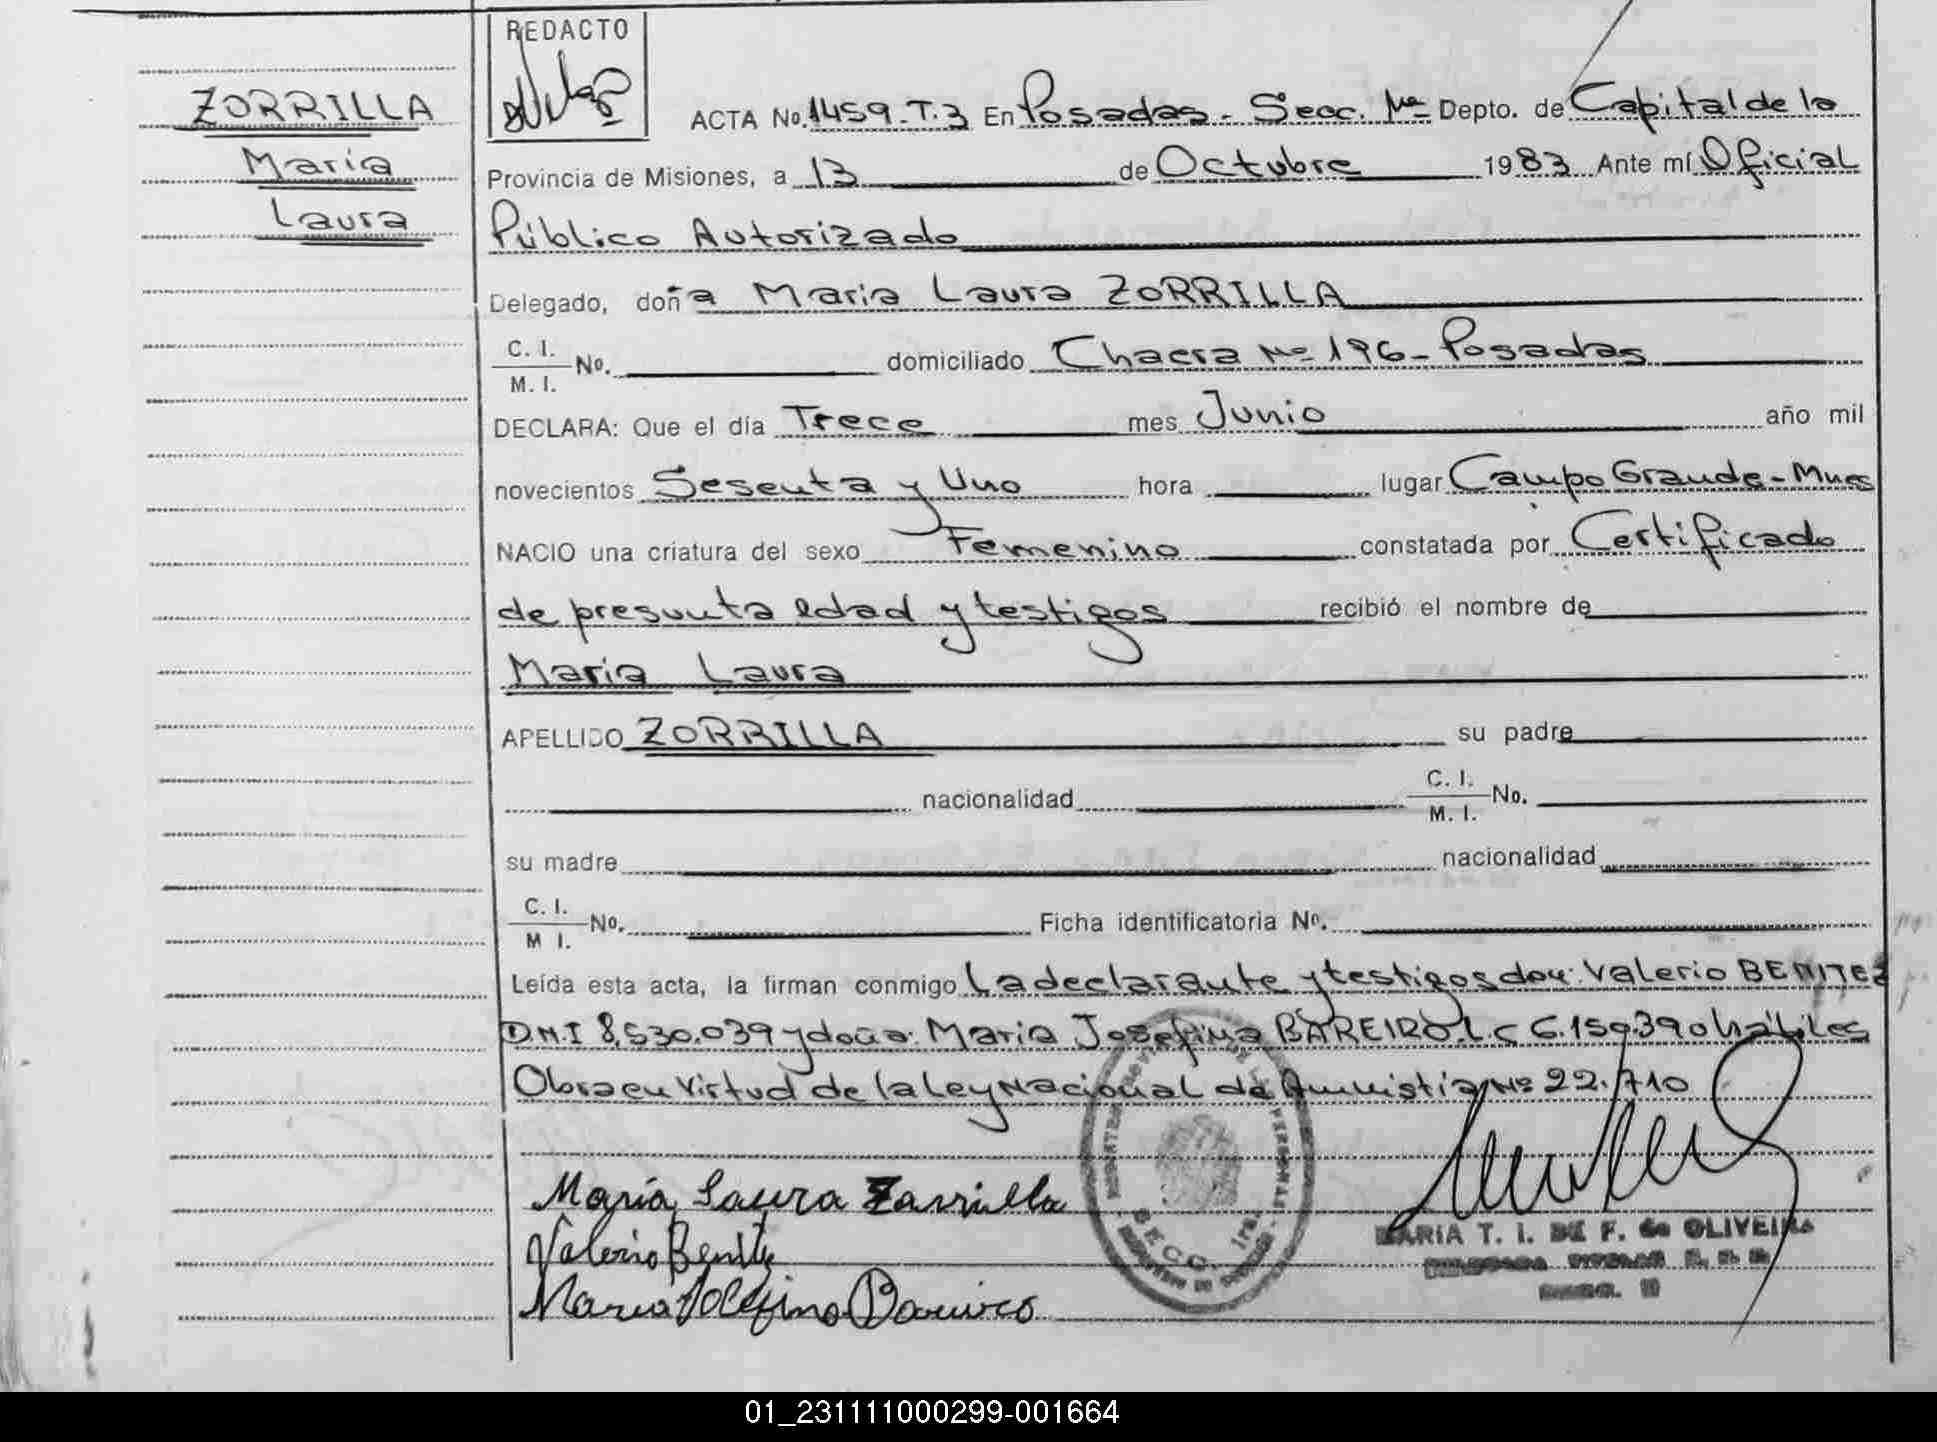 REDACTO
ZORRILLA
María
Laura
ACTA No. 1459. T. 3 En Posadas - Secc. 1ra Depto. de Capital de la
Provincia de Misiones, a 13 de Octubre 1983 Ante mí Oficial
Público Autorizado
Delegado, doña Maria Laura ZORRILLA
C. I.
M. I. No. domiciliado Chacra No 196 - Posadas
DECLARA: Que el día Trece mes Junio año mil
novecientos Sesenta y Uno hora lugar Campo Grande - Mnes
NACIO una criatura del sexo Femenino constatada por Certificado
de presunta edad y testigos recibió el nombre de
María Laura
APELLIDO ZORRILLA su padre
nacionalidad C. I. No.
M. I.
su madre nacionalidad
C. I.
M I. No. Ficha identificatoria Nº.
Leída esta acta, la firman conmigo La declarante y testigos don: Valerio BENITEZ
D.N.I 8.530.039 y doña: Maria Josefina BAREIRO L.C 6.159.390 hábiles
Obra en virtud de la Ley Nacional de Amnistía No 22.710
María Laura Zorrilla
Valerio Benitez
Maria Josefina Bareiro
MARIA T. I. DE F. de OLIVEIRA
01_231111000299-001664